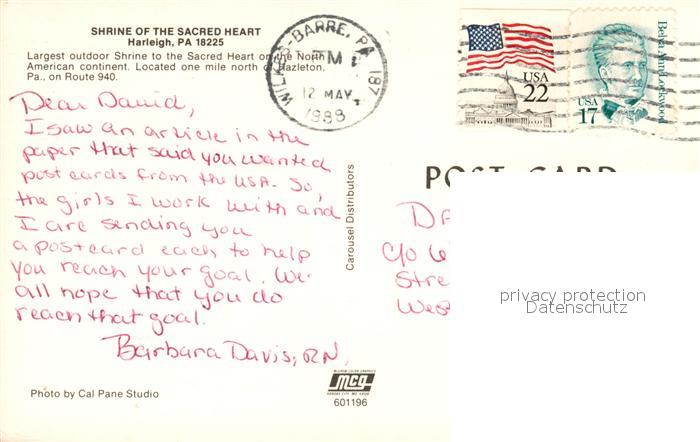 SHRINE OF THE SACRED HEART
Harleigh, PA 18225
Largest outdoor Shrine to the Sacred Heart on the North
American continent. Located one mile north of Hazleton,
Pa., on Route 940.
WILKES-BARRE, PA 187
PM
12 MAY
1988
USA
22
USA
17
Belva Ann Lockwood
Dear David,
I saw an article in the
paper that said you wanted
postcards from the USA. So,
the girls I work with and
I are sending you
a postcard each to help
you reach your goal. We
all hope that you do
reach that goal.
Barbara Davis, RN.
Carousel Distributors
POST CARD
c/o
privacy protection
Datenschutz
Photo by Cal Pane Studio
mcg
601196